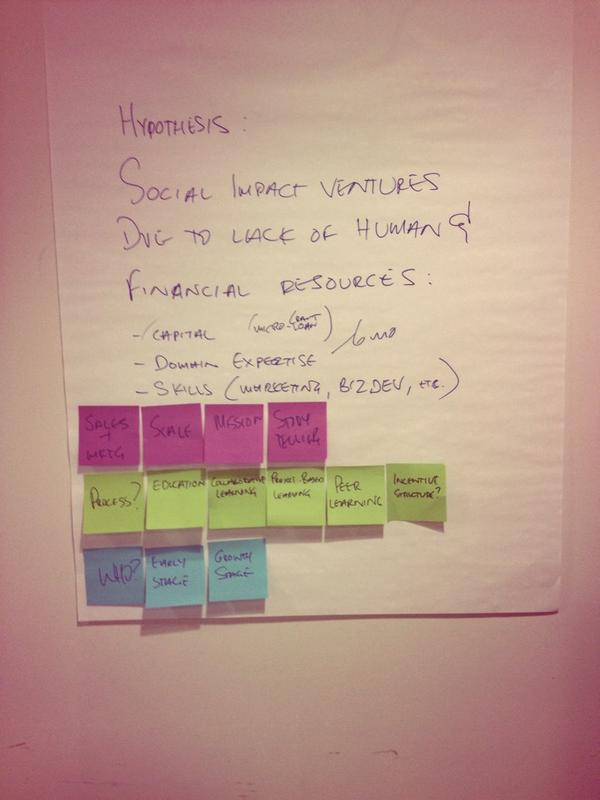 HYPOTHESIS:
SOCIAL IMPACT VENTURES
DUE TO LACK OF HUMAN &
FINANCIAL RESOURCES:
- CAPITAL (MICRO-GRANT LOAN) / 6 MO
- DOMAIN EXPERTISE
- SKILLS (MARKETING, BIZDEV, ETC.)
SALES + MKTG
SCALE
MISSION
STORY TELLING
PROCESS?
EDUCATION
COLLABORATIVE LEARNING
PROJECT-BASED LEARNING
PEER LEARNING
INCENTIVE STRUCTURE?
WHO?
EARLY STAGE
GROWTH STAGE